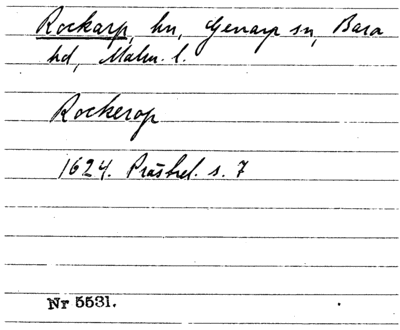 Rockarp, hn, Genarp sn, Bara
hd, Malm. l.
Rockerop
1624. Prästrel. s. 7
Nr 5531.